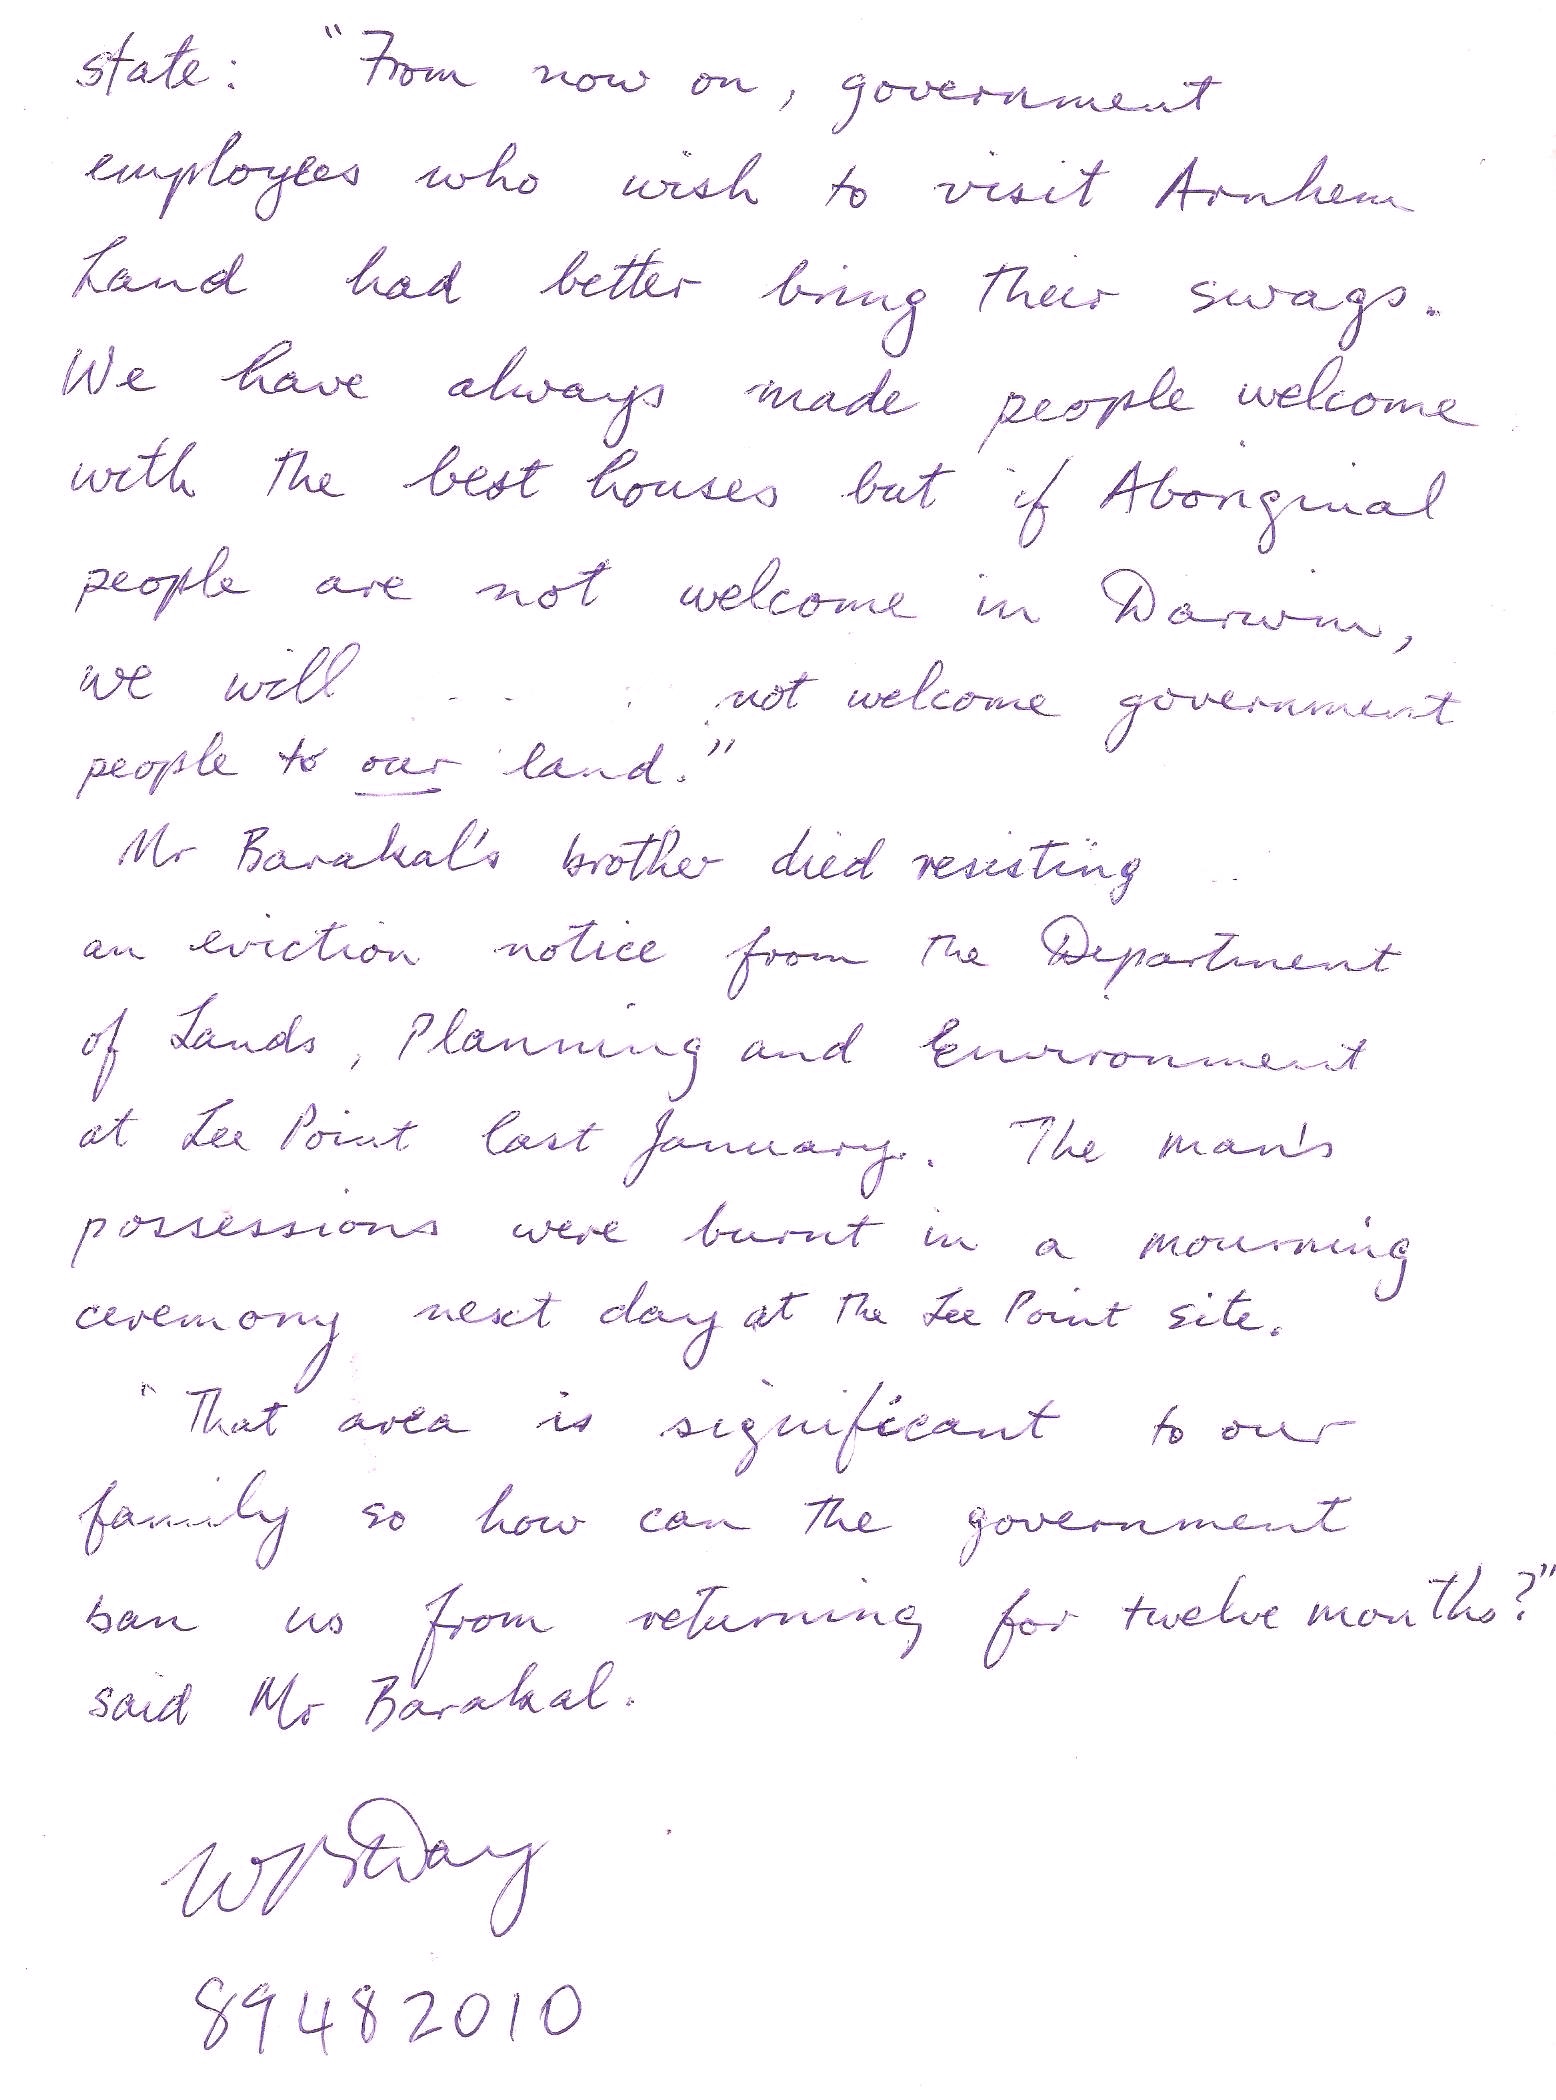 state: "From now on, government
employees who wish to visit Arnhem
Land had better bring their swags.
We have always made people welcome
with the best houses but if Aboriginal
people are not welcome in Darwin,
we will not welcome government
people to our land."
Mr Barakal's brother died resisting
an eviction notice from the Department
of Lands, Planning and Environment
at Lee Point last January. The man's
possessions were burnt in a mourning
ceremony next day at the Lee Point site.
"That area is significant to our
family so how can the government
ban us from returning for twelve months?"
said Mr Barakal.
WBDay
89482010